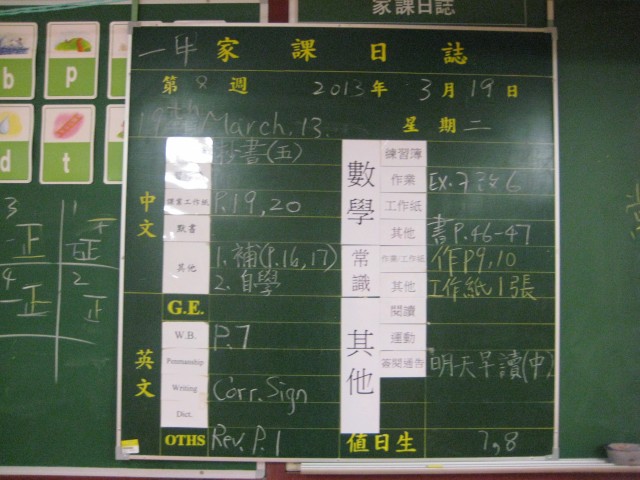 家課日誌
一甲 家課日誌
第 8 週 2013年 3月19日
19th March, 13 星期二
抄書(五)
課室工作紙 P.19, 20
默書
其他 1. 補(P.16, 17)
2. 自學
中文
G.E.
W.B. P.7
Penmanship
Writing Corr. Sign
Dict.
英文
OTHS Rev. P.1
數學
練習簿
作業 Ex.7改6
工作紙
其他 書P.46-47
常識
作業/工作紙 作P9, 10
其他 工作紙1張
其他
閱讀
運動
簽閱通告 明天早讀(中)
值日生 7, 8
b
p
d
t
3
正
4
正
1
正
2
正